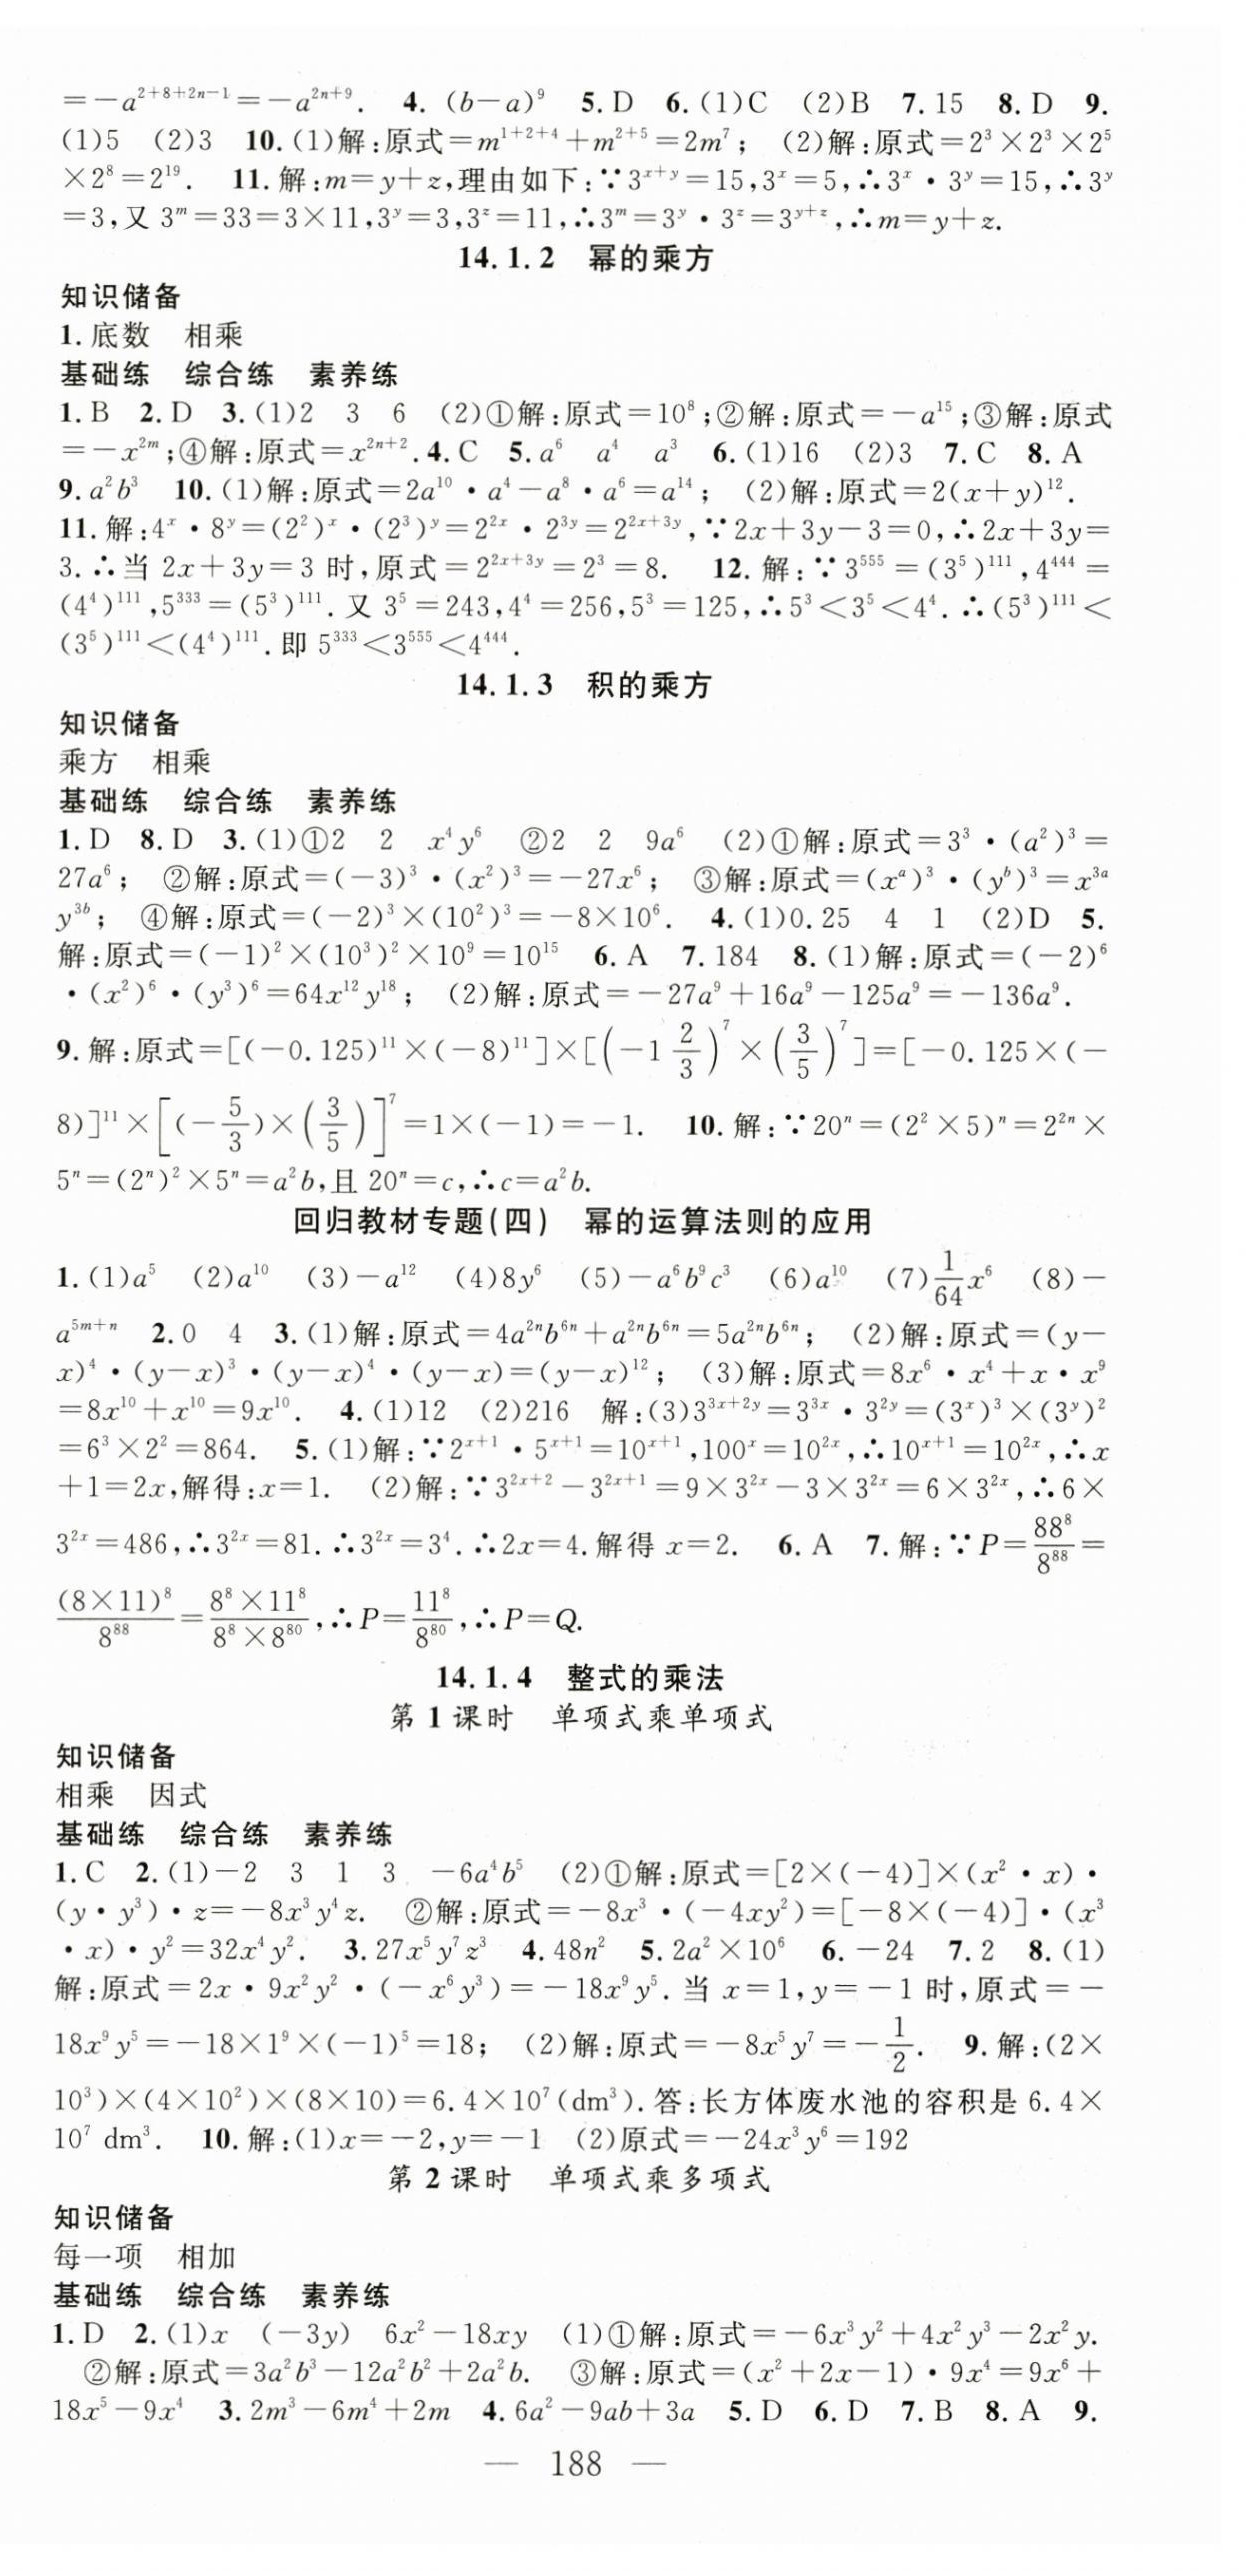 =-a²⁺⁸⁺²ⁿ⁻¹=-a²ⁿ⁺⁹. 4. (b-a)⁹ 5. D 6. (1)C (2)B 7. 15 8. D 9.
(1)5 (2)3 10. (1)解:原式=m¹⁺²⁺⁴+m²⁺⁵=2m⁷; (2)解:原式=2³×2³×2⁵
×2⁸=2¹⁹. 11. 解:m=y+z,理由如下:∵3ˣ⁺ʸ=15,3ˣ=5,∴3ˣ·3ʸ=15,∴3ʸ
=3,又 3ᵐ=33=3×11,3ʸ=3,3ᶻ=11,∴3ᵐ=3ʸ·3ᶻ=3ʸ⁺ᶻ,∴m=y+z.
14.1.2 幂的乘方
知识储备
1. 底数 相乘
基础练 综合练 素养练
1. B 2. D 3. (1)2 3 6 (2)①解:原式=10⁸;②解:原式=-a¹⁵;③解:原式
=-x²ᵐ;④解:原式=x²ⁿ⁺². 4. C 5. a⁶ a⁴ a³ 6. (1)16 (2)3 7. C 8. A
9. a²b³ 10. (1)解:原式=2a¹⁰·a⁴-a⁸·a⁶=a¹⁴; (2)解:原式=2(x+y)¹².
11. 解:4ˣ·8ʸ=(2²)ˣ·(2³)ʸ=2²ˣ·2³ʸ=2²ˣ⁺³ʸ,∵2x+3y-3=0,∴2x+3y=
3. ∴当 2x+3y=3 时,原式=2²ˣ⁺³ʸ=2³=8. 12. 解:∵3⁵⁵⁵=(3⁵)¹¹¹,4⁴⁴⁴=
(4⁴)¹¹¹,5³³³=(5³)¹¹¹. 又 3⁵=243,4⁴=256,5³=125,∴5³<3⁵<4⁴. ∴(5³)¹¹¹<
(3⁵)¹¹¹<(4⁴)¹¹¹. 即 5³³³<3⁵⁵⁵<4⁴⁴⁴.
14.1.3 积的乘方
知识储备
乘方 相乘
基础练 综合练 素养练
1. D 8. D 3. (1)①2 2 x⁴y⁶ ②2 2 9a⁶ (2)①解:原式=3³·(a²)³=
27a⁶; ②解:原式=(-3)³·(x²)³=-27x⁶; ③解:原式=(xᵃ)³·(yᵇ)³=x³ᵃ
y³ᵇ; ④解:原式=(-2)³×(10²)³=-8×10⁶. 4. (1)0.25 4 1 (2)D 5.
解:原式=(-1)²×(10³)²×10⁹=10¹⁵ 6. A 7. 184 8. (1)解:原式=(-2)⁶
·(x²)⁶·(y³)⁶=64x¹²y¹⁸; (2)解:原式=-27a⁹+16a⁹-125a⁹=-136a⁹.
9. 解:原式=[(-0.125)¹¹×(-8)¹¹]×[(-1 2/3)⁷×(3/5)⁷]=[-0.125×(-
8)]¹¹×[(-5/3)×(3/5)]⁷=1×(-1)=-1. 10. 解:∵20ⁿ=(2²×5)ⁿ=2²ⁿ×
5ⁿ=(2ⁿ)²×5ⁿ=a²b,且 20ⁿ=c,∴c=a²b.
回归教材专题(四) 幂的运算法则的应用
1. (1)a⁵ (2)a¹⁰ (3)-a¹² (4)8y⁶ (5)-a⁶b⁹c³ (6)a¹⁰ (7)1/64 x⁶ (8)-
a⁵ᵐ⁺ⁿ 2. 0 4 3. (1)解:原式=4a²ⁿb⁶ⁿ+a²ⁿb⁶ⁿ=5a²ⁿb⁶ⁿ; (2)解:原式=(y-
x)⁴·(y-x)³·(y-x)⁴·(y-x)=(y-x)¹²; (3)解:原式=8x⁶·x⁴+x·x⁹
=8x¹⁰+x¹⁰=9x¹⁰. 4. (1)12 (2)216 解:(3)3³ˣ⁺²ʸ=3³ˣ·3²ʸ=(3ˣ)³×(3ʸ)²
=6³×2²=864. 5. (1)解:∵2ˣ⁺¹·5ˣ⁺¹=10ˣ⁺¹,100ˣ=10²ˣ,∴10ˣ⁺¹=10²ˣ,∴x
+1=2x,解得:x=1. (2)解:∵3²ˣ⁺²-3²ˣ⁺¹=9×3²ˣ-3×3²ˣ=6×3²ˣ,∴6×
3²ˣ=486,∴3²ˣ=81. ∴3²ˣ=3⁴. ∴2x=4. 解得 x=2. 6. A 7. 解:∵P=88⁸/8⁸⁸=
(8×11)⁸/8⁸⁸=8⁸×11⁸/8⁸×8⁸⁰,∴P=11⁸/8⁸⁰,∴P=Q.
14.1.4 整式的乘法
第 1 课时 单项式乘单项式
知识储备
相乘 因式
基础练 综合练 素养练
1. C 2. (1)-2 3 1 3 -6a⁴b⁵ (2)①解:原式=[2×(-4)]×(x²·x)·
(y·y³)·z=-8x³y⁴z. ②解:原式=-8x³·(-4xy²)=[-8×(-4)]·(x³
·x)·y²=32x⁴y². 3. 27x⁵y⁷z³ 4. 48n² 5. 2a²×10⁶ 6. -24 7. 2 8. (1)
解:原式=2x·9x²y²·(-x⁶y³)=-18x⁹y⁵. 当 x=1,y=-1 时,原式=-
18x⁹y⁵=-18×1⁹×(-1)⁵=18; (2)解:原式=-8x⁵y⁷=-1/2. 9. 解:(2×
10³)×(4×10²)×(8×10)=6.4×10⁷(dm³). 答:长方体废水池的容积是 6.4×
10⁷ dm³. 10. 解:(1)x=-2,y=-1 (2)原式=-24x³y⁶=192
第 2 课时 单项式乘多项式
知识储备
每一项 相加
基础练 综合练 素养练
1. D 2. (1)x (-3y) 6x²-18xy (1)①解:原式=-6x³y²+4x²y³-2x²y.
②解:原式=3a²b³-12a²b²+2a²b. ③解:原式=(x²+2x-1)·9x⁴=9x⁶+
18x⁵-9x⁴ 3. 2m³-6m⁴+2m 4. 6a²-9ab+3a 5. D 6. D 7. B 8. A 9.
— 188 —